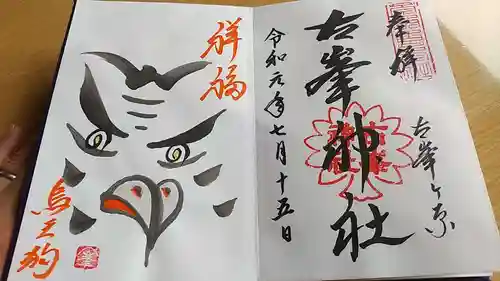 奉拝
古峯ヶ原
古峯神社
令和元年七月十五日
祥福
烏天狗